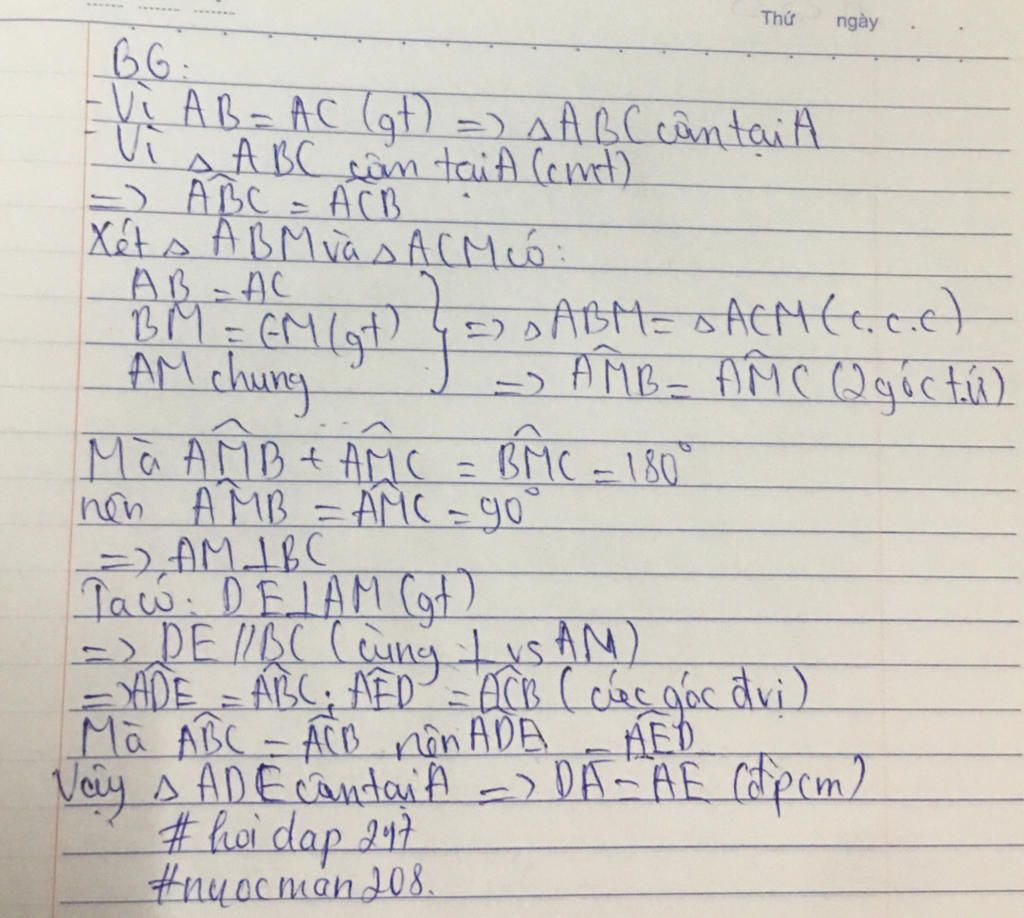 Thứ ngày
BG:
- Vì AB = AC (gt) => △ABC cân tại A
- Vì △ABC cân tại A (cmt)
=> ABC = ACB
Xét △ABM và △ACM có:
AB = AC
BM = CM (gt) } => △ABM = △ACM (c.c.c)
AM chung => AMB = AMC (2 góc t.ứ)
Mà AMB + AMC = BMC = 180°
nên AMB = AMC = 90°
=> AM⊥BC
Ta có: DE⊥AM (gt)
=> DE//BC (cùng ⊥ vs AM)
=> ADE = ABC; AED = ACB (các góc đvị)
Mà ABC = ACB nên ADE = AED
Vậy △ADE cân tại A => DA = AE (đpcm)
# hoi dap 247
#nuocman208.